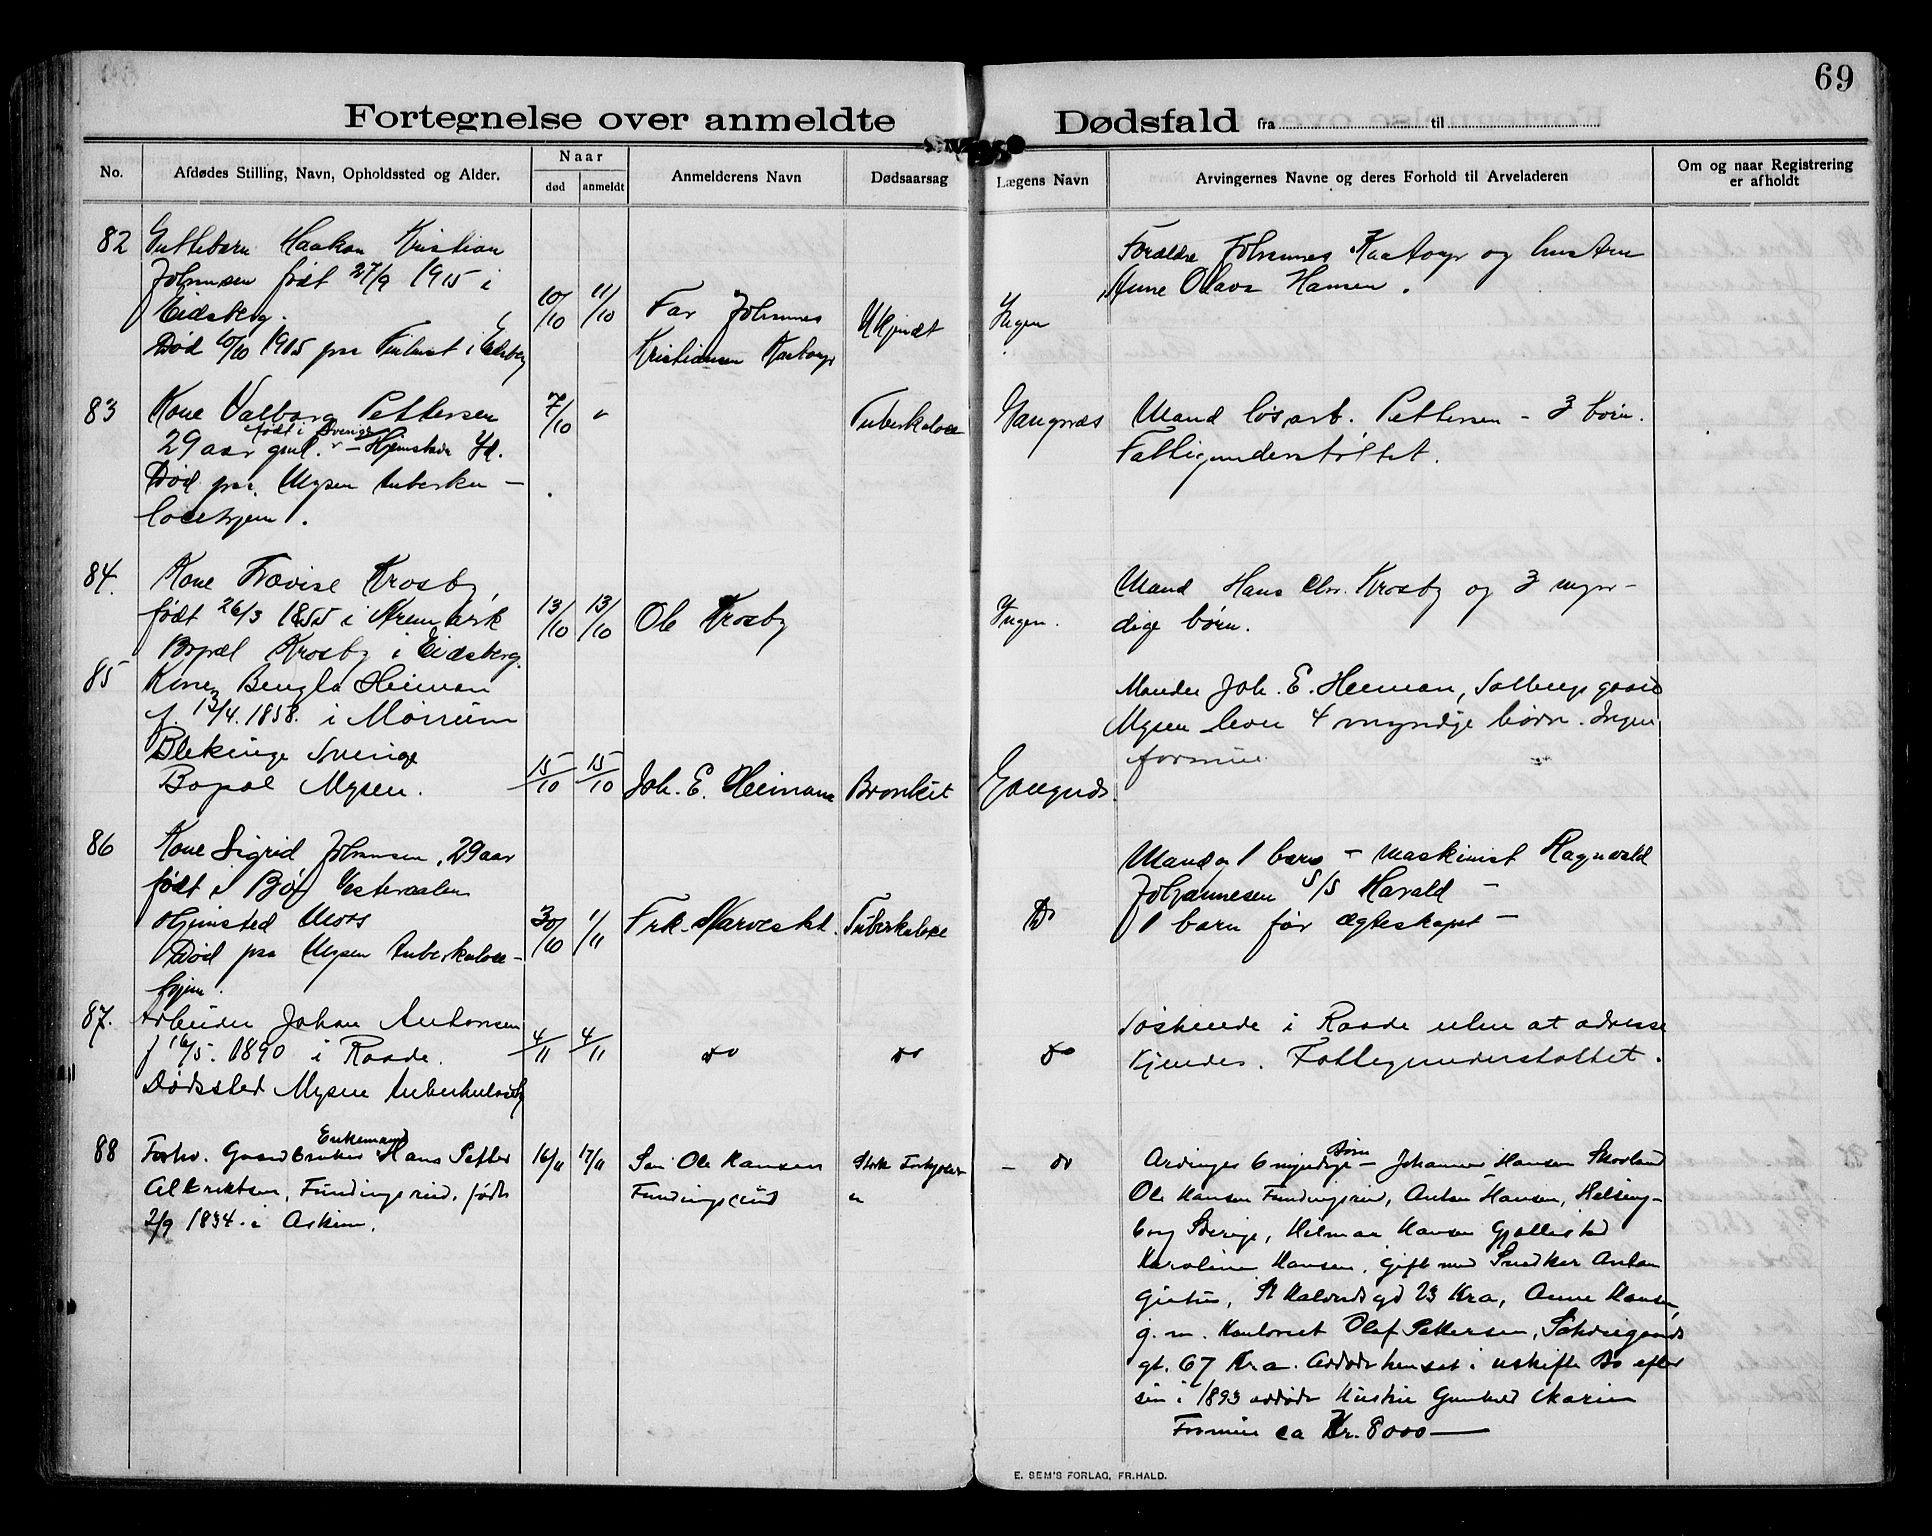 69
Fortegnelse over anmeldte Dødsfald fra til
No.
Afdødes Stilling, Navn, Opholdssted og Alder.
Naar
død
anmeldt
Anmelderens Navn
Dødsaarsag
Lægens Navn
Arvingernes Navne og deres Forhold til Arveladeren
Om og naar Registrering
er afholdt
82 Guttebarn Haakon Kristian
Johansen født 27/9 1915 i
Eidsberg.
Død 10/10 1915 paa i Eidsberg
10/10 11/10
Far Johannes
Kristiansen
Ukjendt
Ingen
Forældre Johannes og hustru
Anne Olava Hansen.
83 Kone Valborg Pettersen
29 aar gml. født i Sverige - Hjemsted
Død paa Mysen tuberku-
losehjem.
7/10 "
Tuberkulose
Gangnæs
Mand løsarb. Pettersen - 3 børn.
Fattigunderstøttet.
84. Kone Krosby
født 26/3 1855 i Aremark
Bopæl Krosby i Eidsberg.
13/10 13/10
Ole Krosby
Ingen.
Mand Hans Chr. Krosby og 3 myn-
dige børn.
85 Kone Bengta Heiman
f. 13/4. 1858. i Mörrum
Blekinge Sverige
Bopæl Mysen.
15/10 15/10
Joh. E. Heimann
Bronkit
Gangnæs.
Manden Joh. E. Heeman, gaard
Mysen 4 myndige børn. Ingen
formue
86 Kone Sigrid Johansen, 29 aar
født i Bø Vesteraalen
Hjemsted Moss
Død paa Mysen tuberkulose-
hjem.
30/10 1/11
Frk.
Tuberkulose
Do
Mand og 1 barn - maskinist Ragnvald
Johannesen S/S Harald -
1 barn før ægteskapet -
87. Arbeider Johan Antonsen
f 16/5. 1890 i Raade.
Dødssted Mysen tuberkulosehj
4/11 4/11
do
do
do
Søskende i Raade uten at adresse
kjendes. Fattigunderstøttet.
88 Forhv. Gaardbruker Enkemand Hans Petter
Albrektsen, Fundingsrud. født
2/9 1834. i Askim.
16/11 17/11
Søn Ole Hansen
Fundingsrud
- do
Arvinger 6 myndige Børn - Johannes Hansen Skorlund
Ole Hansen Fundingsrud, Anton Hansen, Helsing-
borg Sverige, Hilmar Hansen
Karoline Hansen, gift med Snedker Anton
St Halvardsgd 23 Kra, Anne Hansen
g. m. Olaf Pettersen,
gt. 67 Kra. Avdøde hensat i uskifte Bo efter
sin i 1893 avdøde Hustru Gunhild Marie
Formue ca Kr. 8000 —
E. SEM'S FORLAG, FR.HALD.